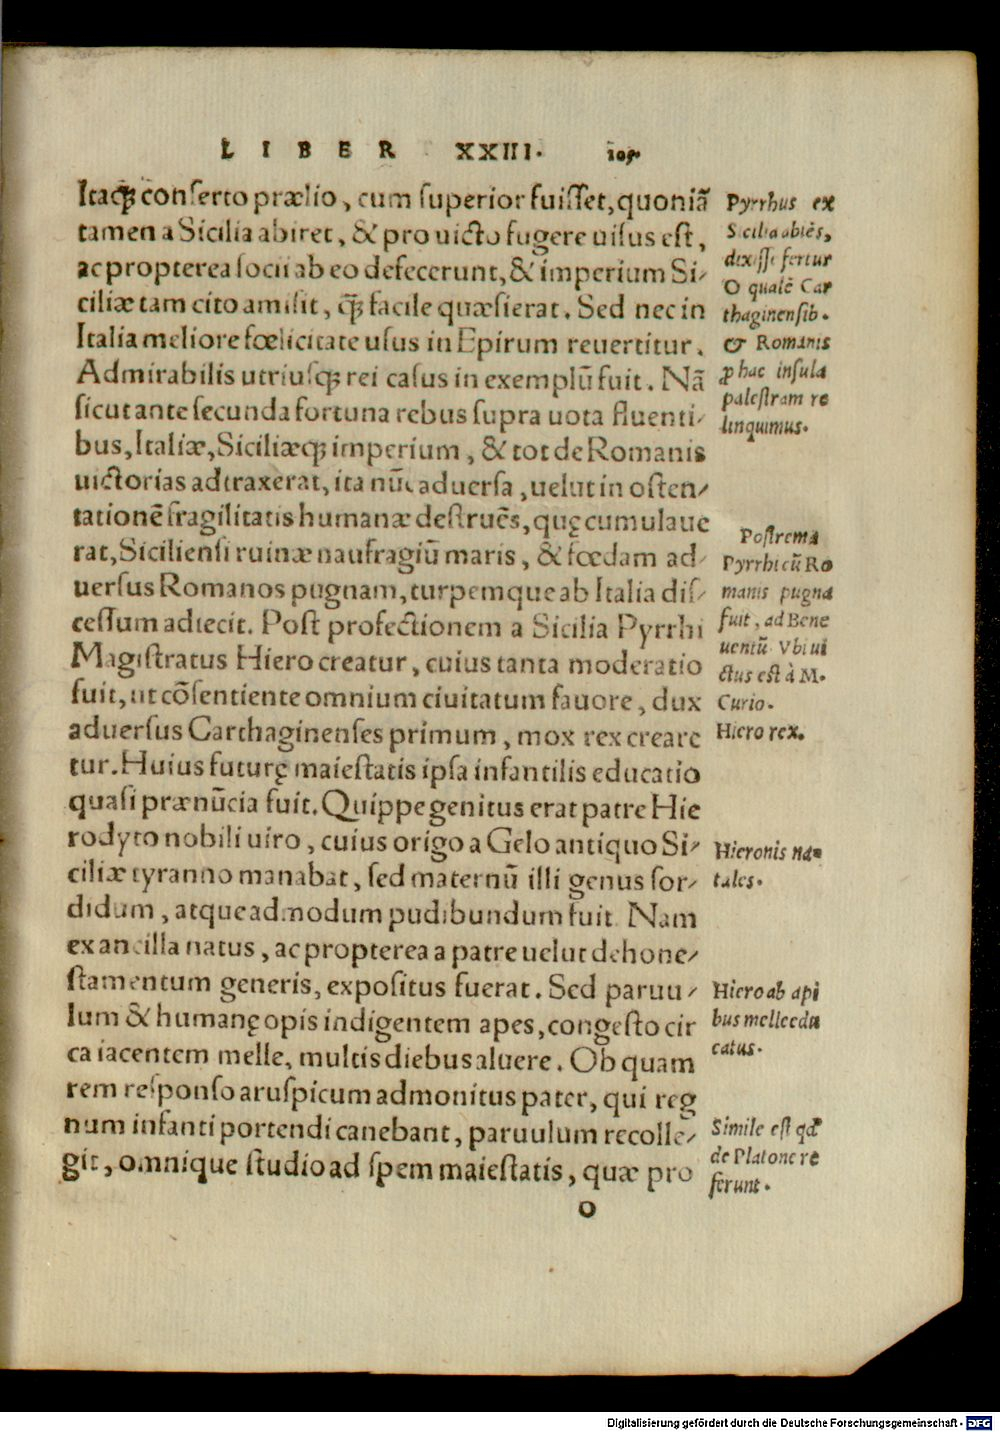 LIBER XXIII. 105.
Itaq; conserto prælio, cum superior fuisset, quoniā
tamen a Sicilia abiret, & pro uicto fugere uisus est,
ac propterea socii ab eo defecerunt, & imperium Si-
ciliæ tam cito amisit, q̃ facile quæsierat. Sed nec in
Italia meliore fœlicitate usus in Epirum reuertitur.
Admirabilis utriusq; rei casus in exemplū fuit. Nā
sicut ante secunda fortuna rebus supra uota fluenti-
bus, Italiæ, Siciliæq; imperium, & tot de Romanis
uictorias adtraxerat, ita nūc aduersa, uelut in osten-
tationē fragilitatis humanæ destruēs, quę cumulaue
rat, Siciliensi ruinæ naufragiū maris, & fœdam ad-
uersus Romanos pugnam, turpemque ab Italia dis-
cessum adiecit. Post profectionem a Sicilia Pyrrhi
Magistratus Hiero creatur, cuius tanta moderatio
fuit, ut cōsentiente omnium ciuitatum fauore, dux
aduersus Carthaginenses primum, mox rex creare
tur. Huius futurę maiestatis ipsa infantilis educatio
quasi prænūcia fuit. Quippe genitus erat patre Hie
rodyto nobili uiro, cuius origo a Gelo antiquo Si-
ciliæ tyranno manabat, sed maternū illi genus sor-
didum, atque admodum pudibundum fuit. Nam
ex ancilla natus, ac propterea a patre uelut dehone-
stamentum generis, expositus fuerat. Sed paruu-
lum & humanę opis indigentem apes, congesto cir
ca iacentem melle, multis diebus aluere. Ob quam
rem responso aruspicum admonitus pater, qui reg
num infanti portendi canebant, paruulum recolle-
git, omnique studio ad spem maiestatis, quæ pro
O
Pyrrhus ex
Sicilia abiēs,
dixisse fertur
O qualē Car
thaginensib.
& Romanis
ꝑ hac insula
palestram re
linquimus.
Postrema
Pyrrhi cū Ro
manis pugna
fuit, ad Bene
uentū Vbi ui
ctus est à M.
Curio.
Hiero rex.
Hieronis na-
tales.
Hiero ab api
bus melle edu
catus.
Simile est qd̄
de Platone re
ferunt.
Digitalisierung gefördert durch die Deutsche Forschungsgemeinschaft - DFG